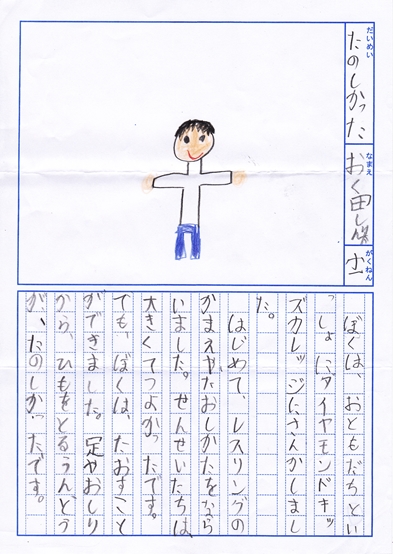 だいめい
たのしかった
なまえ
おく田
がくねん
小一
ぼくは、おともだちとい
っしょに、ダイヤモンドキッ
ズカレッジにさんかしまし
た。
はじめて、レスリングの
かまえやたおしかたをなら
いました。せんせいたちは、
大きくてつよかったです。
でも、ぼくは、たおすこと
ができました。足やおしり
から、ひもをとるうんどう
が、たのしかったです。